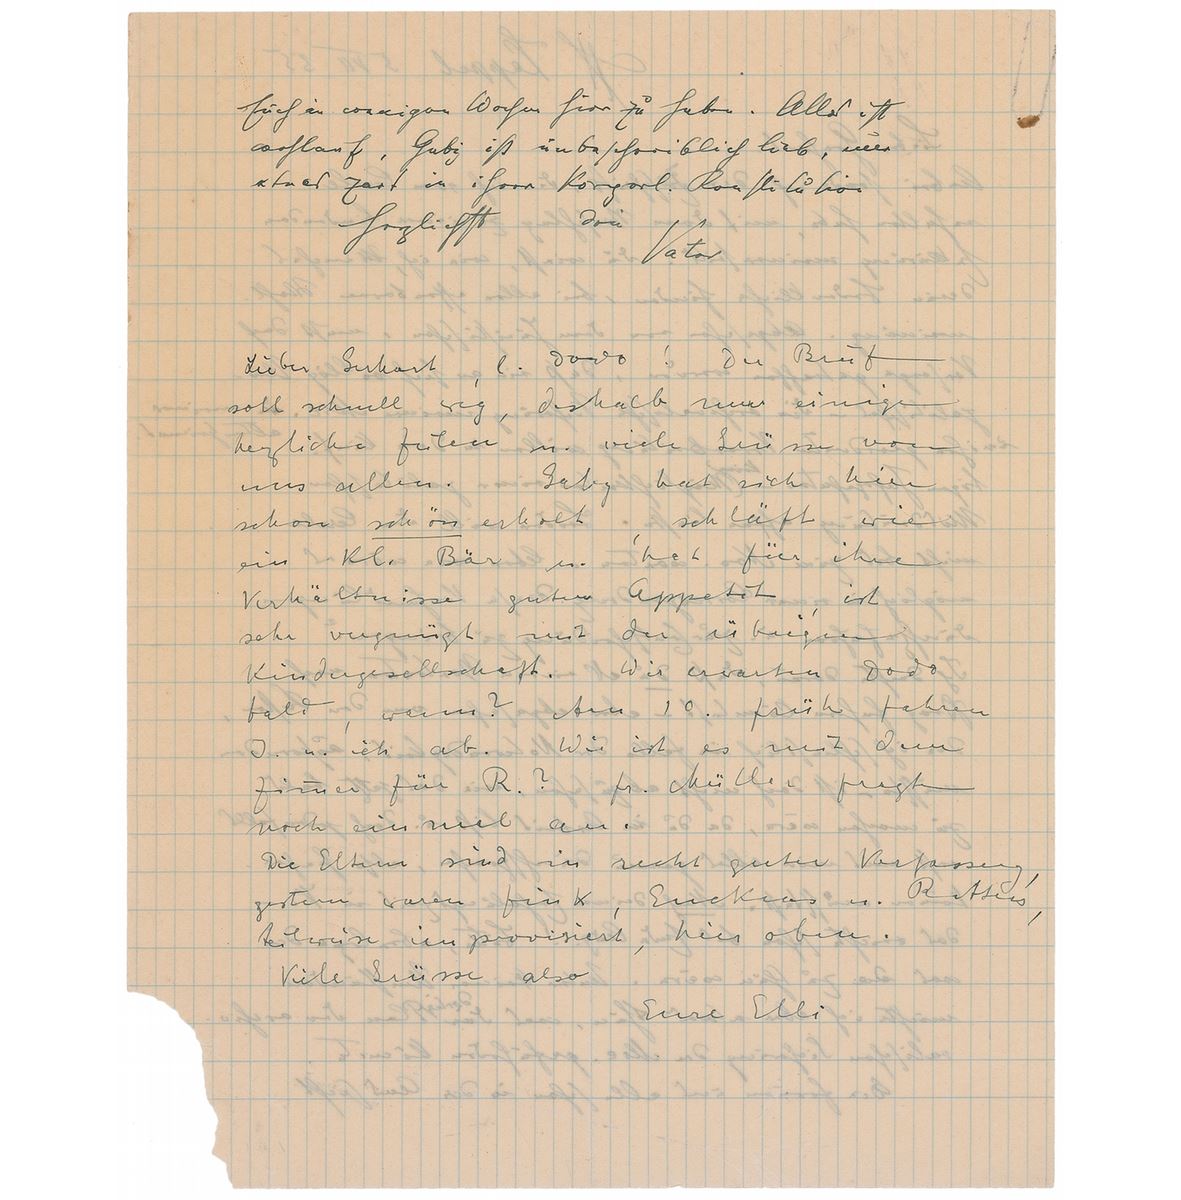 Euch in wenigen Wochen hier zu haben. Alles ist
wohlauf, Gaby ist unbeschreiblich lieb, nur
etwas zart in ihrer körperl. Konstitution
Herzlichst Dein
Vater
Lieber Gerhart, l. Dodo! Der Brief
soll schnell weg, deshalb nur einige
herzliche Zeilen u. viele Grüsse von
uns allen. Gaby hat sich hier
schon schön erholt, schläft wie
ein Kl. Bär u. hat für ihre
Verhältnisse guten Appetit, ist
sehr vergnügt mit der übrigen
Kindergesellschaft. Wir erwarten Dodo
bald, wann? Am 10. früh fahren
I. u. ich ab. Wie ist es mit dem
Zim̅er für R.? Fr. Müller fragt
noch einmal an.
Die Eltern sind in recht guter Verfassung,
gestern waren Fink, Euckens u.
teilweise improvisiert, hier oben.
Viele Grüsse also
Eure Elli